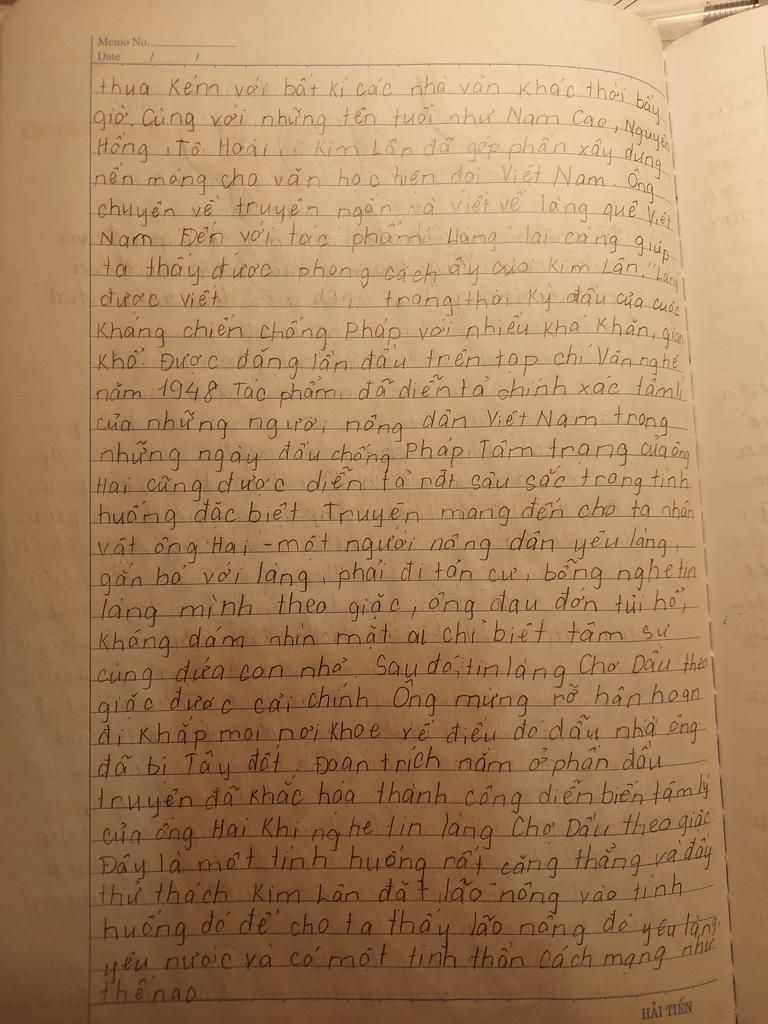 Memo No.
Date / /
thua kém với bất kì các nhà văn khác thời bấy
giờ. Cùng với những tên tuổi như Nam Cao, Nguyên
Hồng, Tô Hoài, Kim Lân đã góp phần xây dựng
nền móng cho văn học hiện đại Việt Nam. Ông
chuyên về truyện ngắn và viết về làng quê Việt
Nam. Đến với tác phẩm "Làng" lại càng giúp
ta thấy được phong cách ấy của Kim Lân. "Làng"
được viết trong thời kỳ đầu của cuộc
kháng chiến chống Pháp với nhiều khó khăn, gian
khổ. Được đăng lần đầu trên tạp chí Văn nghệ
năm 1948. Tác phẩm đã diễn tả chính xác tâm lí
của những người nông dân Việt Nam trong
những ngày đầu chống Pháp. Tâm trạng của ông
Hai cũng được diễn tả rất sâu sắc trong tình
huống đặc biệt. Truyện mang đến cho ta nhân
vật ông Hai - một người nông dân yêu làng,
gắn bó với làng, phải đi tản cư, bỗng nghe tin
làng mình theo giặc, ông đau đớn tủi hổ,
không dám nhìn mặt ai chỉ biết tâm sự
cùng đứa con nhỏ. Sau đó, tin làng Chợ Dầu theo
giặc được cải chính. Ông mừng rỡ hân hoan
đi khắp mọi nơi khoe về điều đó dẫu nhà ông
đã bị Tây đốt. Đoạn trích nằm ở phần đầu
truyện đã khắc hoạ thành công diễn biến tâm lý
của ông Hai khi nghe tin làng Chợ Dầu theo giặc
Đây là một tình huống rất căng thẳng và đầy
thử thách. Kim Lân đặt lão nông vào tình
huống đó để cho ta thấy lão nông đó yêu làng,
yêu nước và có một tinh thần cách mạng như
thế nào
HẢI TIẾN